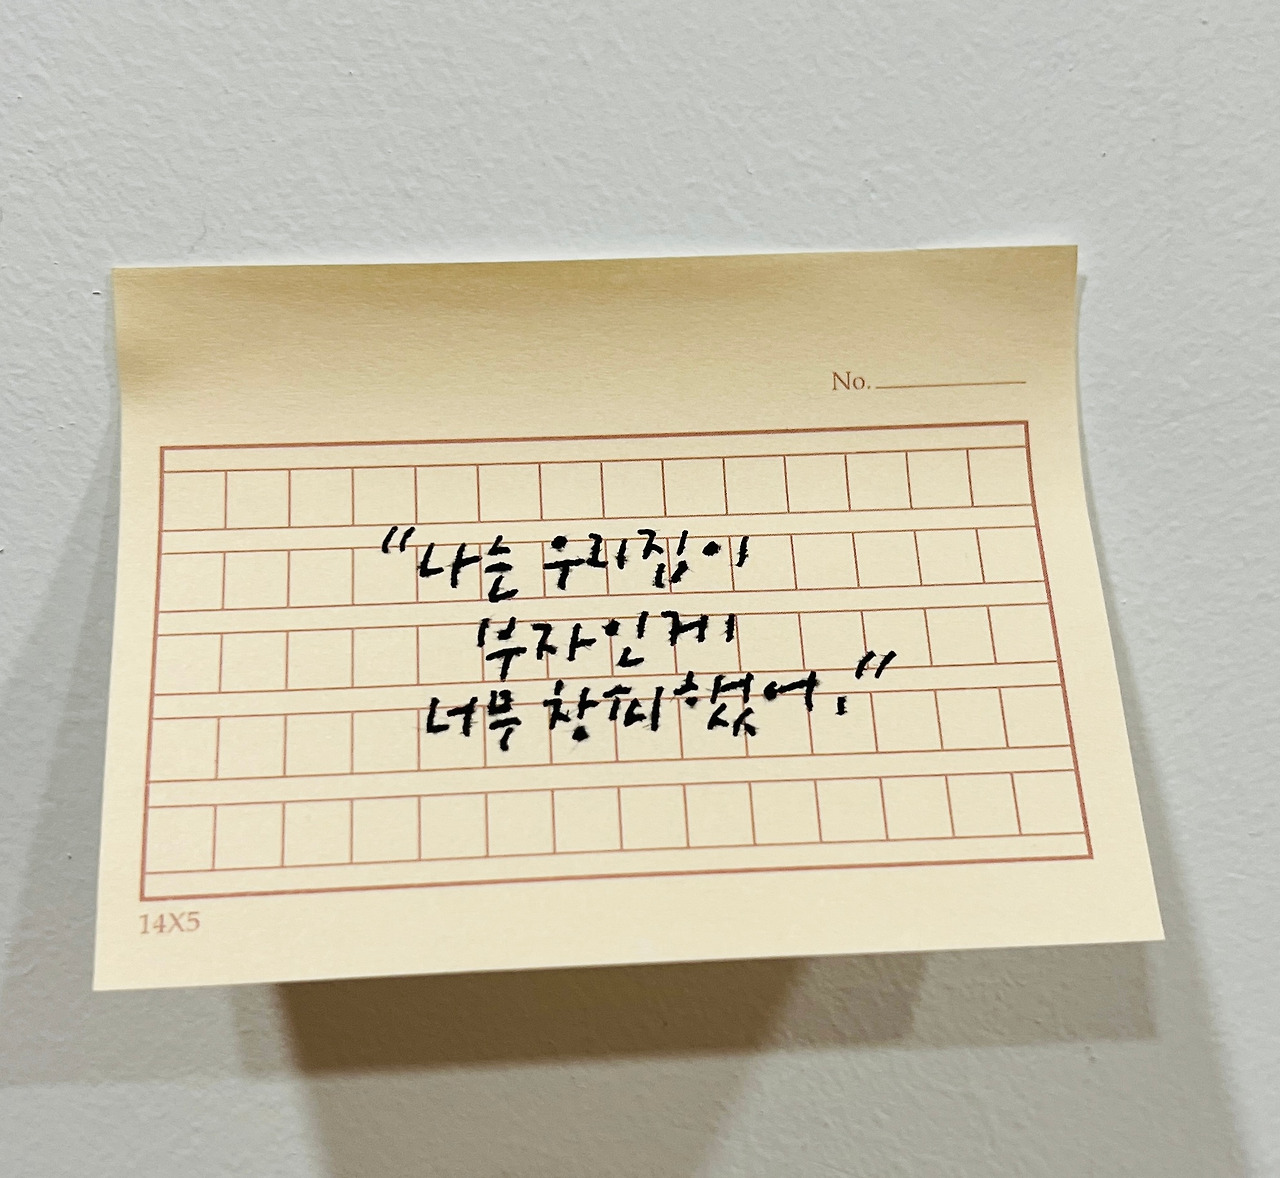 No.
"나는 우리집이
부자인게
너무 창피했어."
14X5